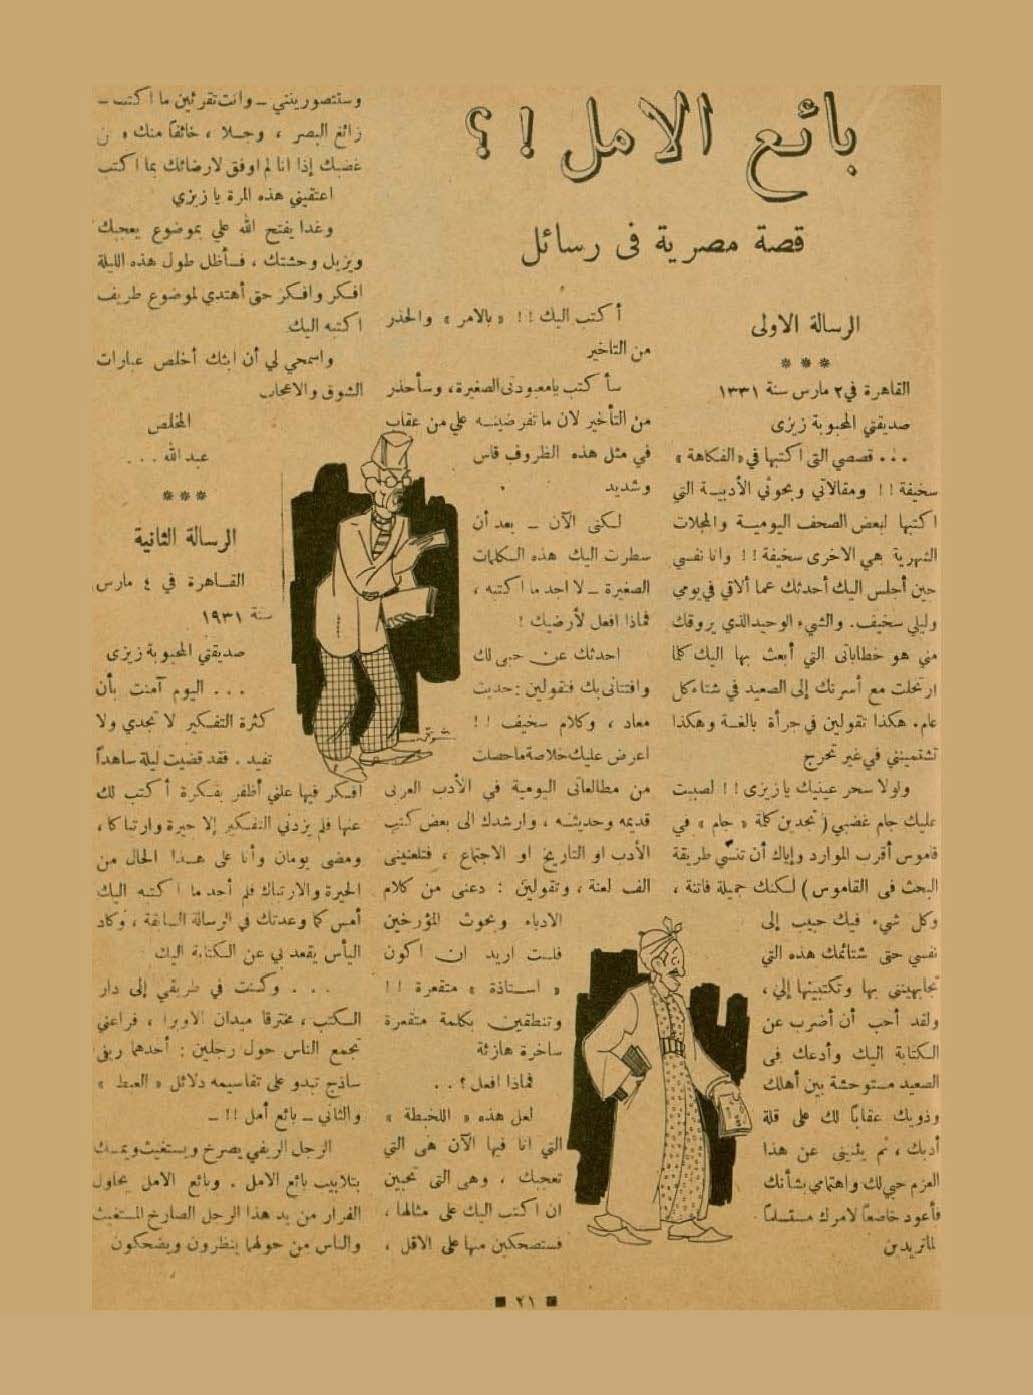 بائع الامل !؟
قصة مصرية فى رسائل
الرسالة الاولى
***
القاهرة في ٢ مارس سنة ١٣٣١
صديقتي المحبوبة زيزى
... قصصي التى اكتبها في «الفكاهة»
سخيفة !! ومقالاتي وبحوثي الأدبيـة التي
اكتبها لبعض الصحف اليوميـة والمجلات
الشهرية هي الاخرى سخيفة !! وانا نفسي
حين أجلس اليك أحدثك عما ألاقي في يومي
وليلي سخيف. والشيء الوحيد الذي يروقك
مني هو خطاباتى التي أبعث بها اليك كلما
ارتحلت مع أسرتك إلى الصعيد في شتاء كل
عام. هكذا تقولين في جرأة بالغـة وهكذا
تشتمينني في غير تحرج
ولولا سحر عينيك يا زيزى !! لصببت
عليك جام غضبي (تجدين كلمة «جام» في
قاموس أقرب الموارد وإياك أن تنسي طريقة
البحث فى القاموس) لـكنك جميلة فاتنة،
وكل شيء فيك حبيب إلى
نفسي حتى شتائمك هذه التي
تجابهينني بها وتكتبينها إلي،
ولقد أحب أن أضرب عن
الـكتابة اليك وأدعك فى
الصعيد مستوحشة بين أهلك
وذويك عقاباً لك على قلة
أدبك، ثم يثنينى عن هذا
العزم حبي لك واهتمامي بشأنك
فأعود خاضعاً لامرك مستسلماً
لما تريدين
أكتب اليك !! «بالامر» والحذر
من التاخير
سأكتب يا معبودتى الصغيرة، وسأحذر
من التأخير لان ما تفرضينـه علي من عقاب
في مثل هذه الظروف قاس
وشديد
لـكنى الآن – بعد أن
سطرت اليك هذه الـكلمات
الصغيرة – لا اجد ما اكتبه،
فماذا افعل لأرضيك !
احدثك عن حبى لك
وافتتاني بك فتقولين: حديث
معاد، وكلام سخيف !!
اعرض عليك خلاصة ما حصلت
من مطالعاتى اليومية في الأدب العربى
قديمه وحديثـه، وارشدك الى بعض كتب
الأدب او التاريخ او الاجتماع، فتلعنينى
الف لعنة، وتقولين: دعنى من كلام
الادباء وبحوث المؤرخين
فلست اريد ان اكون
«اسـتاذة» متقعرة !!
وتنطقين بكلمة متقعرة
ساخرة هازئة
فماذا افعل ؟ . .
لعل هذه «اللخبطة»
التي انا فيها الآن هى التي
تعجبك، وهى التى تحبين
ان اكتب اليك على مثالها،
فستضحكين منها على الاقل،
وستتصورينني – وانت تقرئين ما اكتب –
زائغ البصر، وجـلا، خائفاً منك ومن
غضبك إذا انا لم اوفق لارضائك بما اكتب
اعتقيني هذه المرة يا زيزي
وغدا يفتح الله علي بموضوع يعجبك
ويزيل وحشتك، فـأظل طول هذه الليلة
افكر وافـكر حتى أهتدي لموضوع طريف
اكتبه اليك
واسمحي لي أن ابثك أخلص عبارات
الشوق والاعجاب
المخلص
عبد الله ...
***
الرسالة الثانية
القـاهرة في ٤ مارس
سنة ١٩٣١
صديقتي المحبوبة زيزى
... اليوم آمنت بأن
كثرة التفـكير لا تجدي ولا
تفيد. فقد قضيت ليلة ساهداً
افـكر فيها علني أظفر بفـكرة أكتب لك
عنها فلم يزدني التفـكير إلا حيرة وارتباكا،
ومضى يومان وأنا على هـذا الحال من
الحيرة والارتباك فلم أجد ما اكتبه اليك
أمس كما وعدتك في الرسالة السابقة، وكاد
اليأس يقعد بي عن الـكتابة اليك
... وكنت في طريقي إلى دار
الـكتب، مخترقا ميدان الاوبرا، فراعني
تجمع الناس حول رجلين: أحدهما ريفى
ساذج تبدو على تقاسيمه دلائل «العبط»
والثاني – بائع أمل !! –
الرجل الريفي يصرخ ويستغيث ويمسك
بتلابيب بائع الامل. وبائع الامل يحاول
الفرار من يد هذا الرجل الصارخ المستغيث
والناس من حولهما ينظرون ويضحكون
شوقى
٢١